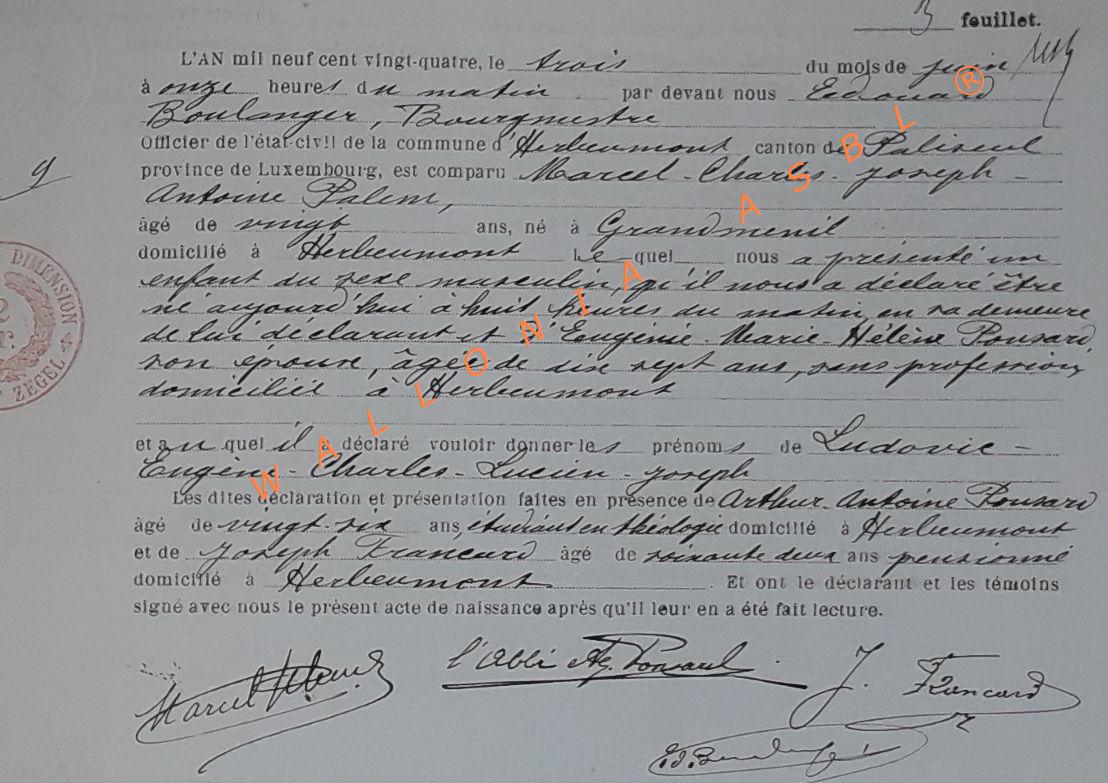 3 feuillet.
L'AN mil neuf cent vingt-quatre, le trois du mois de juin
à onze heures du matin par devant nous Edouard
Boulanger, Bourgmestre
Officier de l'état-civil de la commune d'Herbeumont canton de Paliseul
province de Luxembourg, est comparu Marcel-Charles-Joseph-
Antoine
âgé de vingt ans, né à Grandmenil
domicilié à Herbeumont lequel nous a présenté un
enfant du sexe masculin, qu'il nous a déclaré être
né aujourd'hui à huit heures du matin, en sa demeure
de lui déclarant et d'Eugénie-Marie-Hélène Ponsard,
son épouse, âgée de dix sept ans, sans profession,
domiciliée à Herbeumont
et auquel il a déclaré vouloir donner les prénoms de Ludovic-
Eugène-Charles-Lucien-Joseph
Les dites déclaration et présentation faites en présence de Arthur-Antoine Ponsard
âgé de vingt-six ans, étudiant en théologie domicilié à Herbeumont
et de Joseph Francard âgé de soixante deux ans pensionné
domicilié à Herbeumont. Et ont le déclarant et les témoins
signé avec nous le présent acte de naissance après qu'il leur en a été fait lecture.
9
DIMENSION
ZEGEL
WALLONIA ASBL ®
Marcel
l'Abbé Ponsard
J. Francard